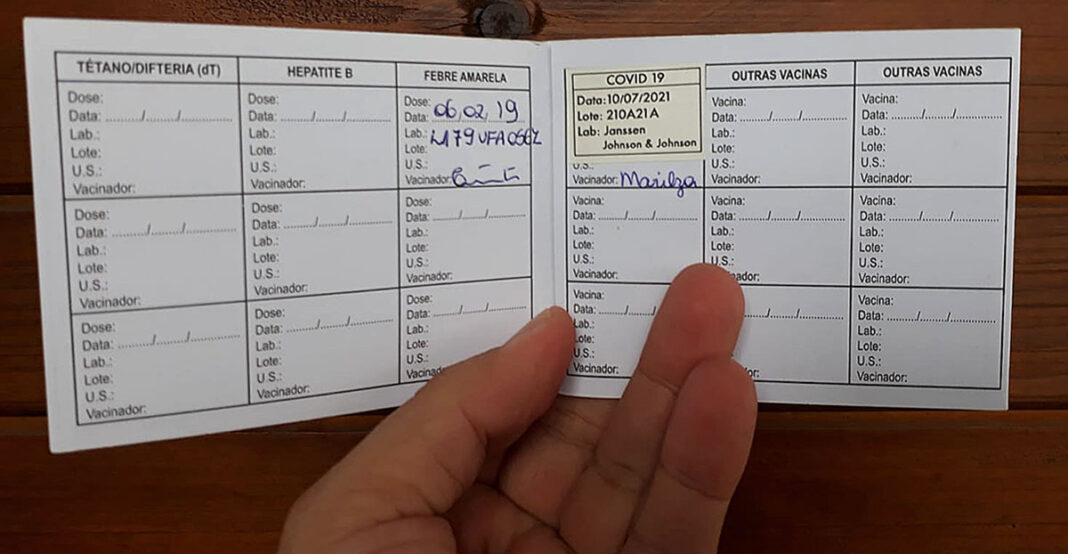 TÉTANO/DIFTERIA (dT)
Dose:
Data: ......./......./............
Lab.:
Lote:
U.S.:
Vacinador:
Dose:
Data: ......./......./............
Lab.:
Lote:
U.S.:
Vacinador:
Dose:
Data: ......./......./............
Lab.:
Lote:
U.S.:
Vacinador:
HEPATITE B
Dose:
Data: ......./......./............
Lab.:
Lote:
U.S.:
Vacinador:
Dose:
Data: ......./......./............
Lab.:
Lote:
U.S.:
Vacinador:
Dose:
Data: ......./......./............
Lab.:
Lote:
U.S.:
Vacinador:
FEBRE AMARELA
Dose:
Data: 06,02,19
Lab.:
Lote:
U.S.:
Vacinador:
Dose:
Data: ......./......./............
Lab.:
Lote:
U.S.:
Vacinador:
Dose:
Data: ......./......./............
Lab.:
Lote:
U.S.:
COVID 19
Data:10/07/2021
Lote: 210A21A
Lab: Janssen
Johnson & Johnson
U.S.:
Vacinador: Marilza
Vacina:
Data: ......./......./............
Lab.:
Lote:
U.S.:
Vacinador:
Vacina:
Data: ......./......./
Lab.:
U.S.:
Vacinador:
OUTRAS VACINAS
Vacina:
Data: ......./......./............
Lab.:
Lote:
U.S.:
Vacinador:
Vacina:
Data: ......./......./............
Lab.:
Lote:
U.S.:
OUTRAS VACINAS
Vacina:
Data: ......./......./............
Lab.:
Lote:
U.S.:
Vacinador:
Vacina:
Data: ......./......./............
Lab.:
Lote:
U.S.:
Vacinador:
Vacina:
Data: ......./......./............
Lab.:
Lote:
U.S.:
Vacinador: